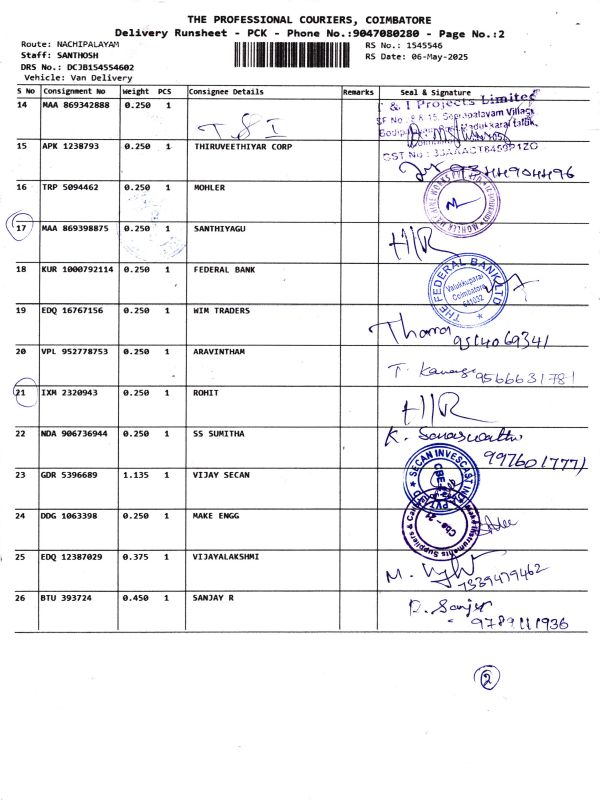 THE PROFESSIONAL COURIERS, COIMBATORE
Delivery Runsheet - PCK - Phone No.:9047080280 - Page No.:2
Route: NACHIPALAYAM
RS No.: 1545546
Staff: SANTHOSH
RS Date: 06-May-2025
DRS No.: DCJB154554602
Vehicle: Van Delivery
S No Consignment No Weight PCS Consignee Details Remarks Seal & Signature
14 MAA 869342888 0.250 1 T S I
& I Projects Limited
15 APK 1238793 0.250 1 THIRUVEETHIYAR CORP
9344904496
16 TRP 5094462 0.250 1 MOHLER
17 MAA 869398875 0.250 1 SANTHIYAGU H/R
18 KUR 1000792114 0.250 1 FEDERAL BANK
THE FEDERAL BANK LTD
Valukkuparai
Coimbatore
641032
19 EDQ 16767156 0.250 1 WIM TRADERS
20 VPL 952778753 0.250 1 ARAVINTHAM
T.
9566631781
21 IXM 2320943 0.250 1 ROHIT H/R
22 NDA 906736944 0.250 1 SS SUMITHA
K.
9976017771
23 GDR 5396689 1.135 1 VIJAY SECAN
SECAN INVESCAST
24 DDG 1063398 0.250 1 MAKE ENGG
25 EDQ 12387029 0.375 1 VIJAYALAKSHMI
M.
7339479462
26 BTU 393724 0.450 1 SANJAY R
9789111936
2